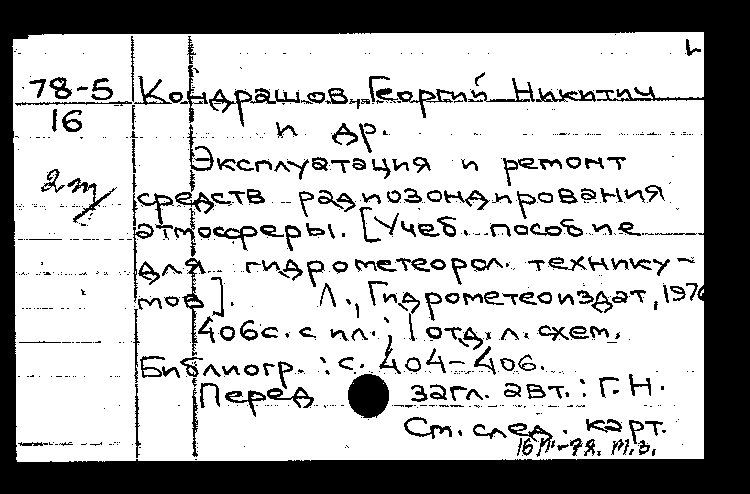 78-5 Кондрашов, Георгий Никитич
16
и др.
Эксплуатация и ремонт
2 т/ средств радиозондирования
атмосферы. [Учеб. пособие
для гидрометеорол. технику-
мов]. Л., Гидрометеоиздат, 1976
406с. с ил.; 1 отд. л. схем.
Библиогр.: с. 404-406.
Перед загл. авт.: Г. Н.
См. след. карт.